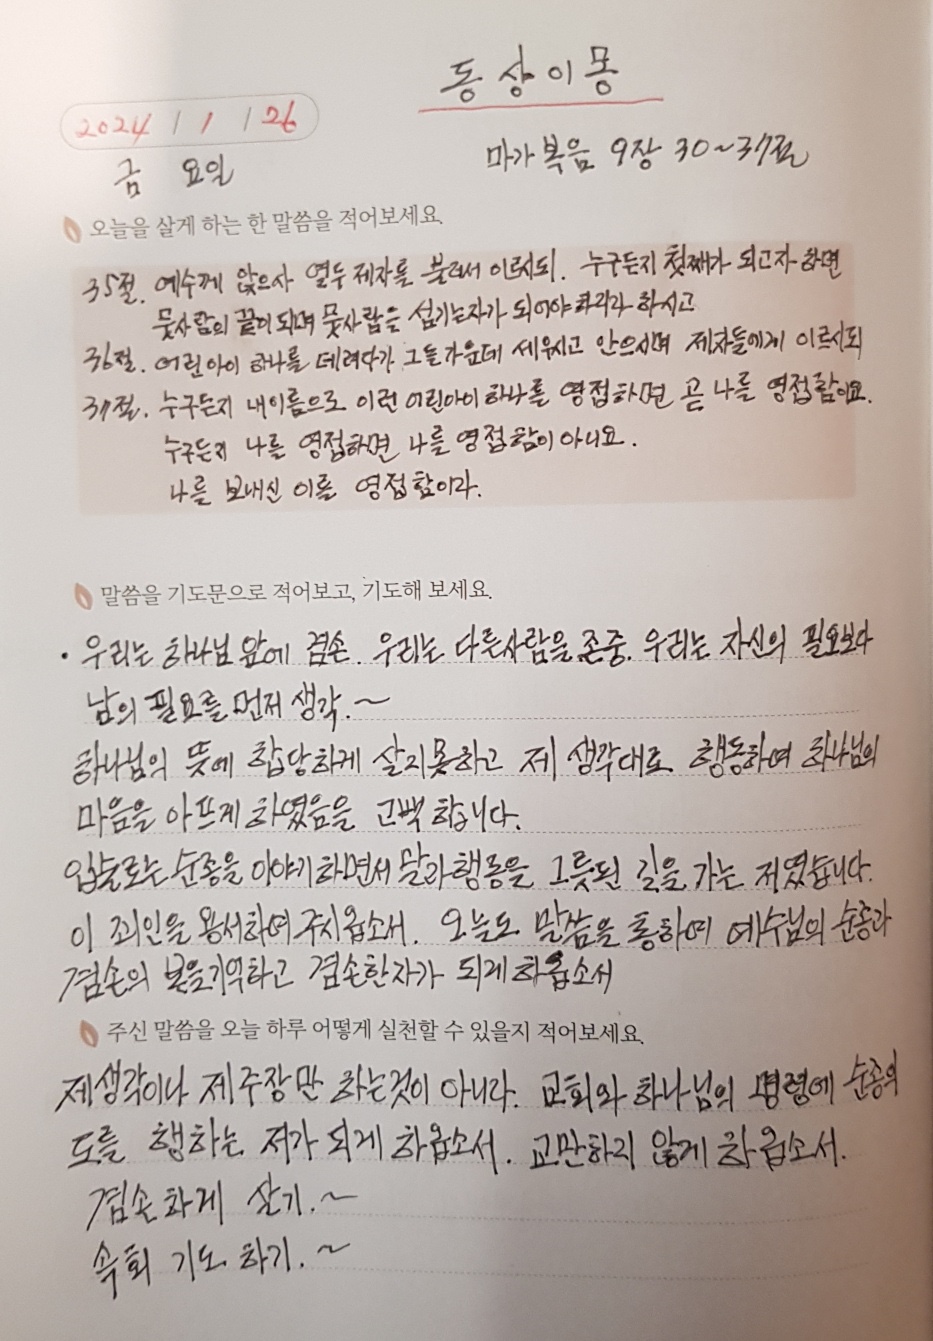 동상이몽
2024 / 1 / 26
금 요일
마가복음 9장 30~37절
오늘을 살게 하는 한 말씀을 적어보세요.
35절. 예수께 앉으사 열두 제자를 불러서 이르시되. 누구든지 첫째가 되고자 하면
뭇사람의 끝이 되며 뭇사람을 섬기는자가 되어야 하리라 하시고
36절. 어린아이 하나를 데려다가 그들가운데 세우시고 안으시며 제자들에게 이르시되
37절. 누구든지 내이름으로 이런 어린아이 하나를 영접하면 곧 나를 영접함이요.
누구든지 나를 영접하면 나를 영접함이 아니요.
나를 보내신 이를 영접함이라.
말씀을 기도문으로 적어보고, 기도해 보세요.
• 우리는 하나님 앞에 겸손. 우리는 다른사람을 존중. 우리는 자신의 필요보다
남의 필요를 먼저 생각.~
하나님의 뜻에 합당하게 살지못하고 제 생각대로 행동하여 하나님의
마음을 아프게 하였음을 고백 합니다.
입술로는 순종을 이야기하면서 말과 행동을 그릇된 길을 가는 저였습니다.
이 죄인을 용서하여 주시옵소서. 오늘도 말씀을 통하여 예수님의 순종과
겸손의 본을기억하고 겸손한자가 되게 하옵소서
주신 말씀을 오늘 하루 어떻게 실천할 수 있을지 적어보세요.
제생각이나 제주장만 하는것이 아니라. 교회와 하나님의 명령에 순종의
도를 행하는 저가 되게 하옵소서. 교만하지 않게 하옵소서.
겸손하게 살기.~
속회 기도 하기.~